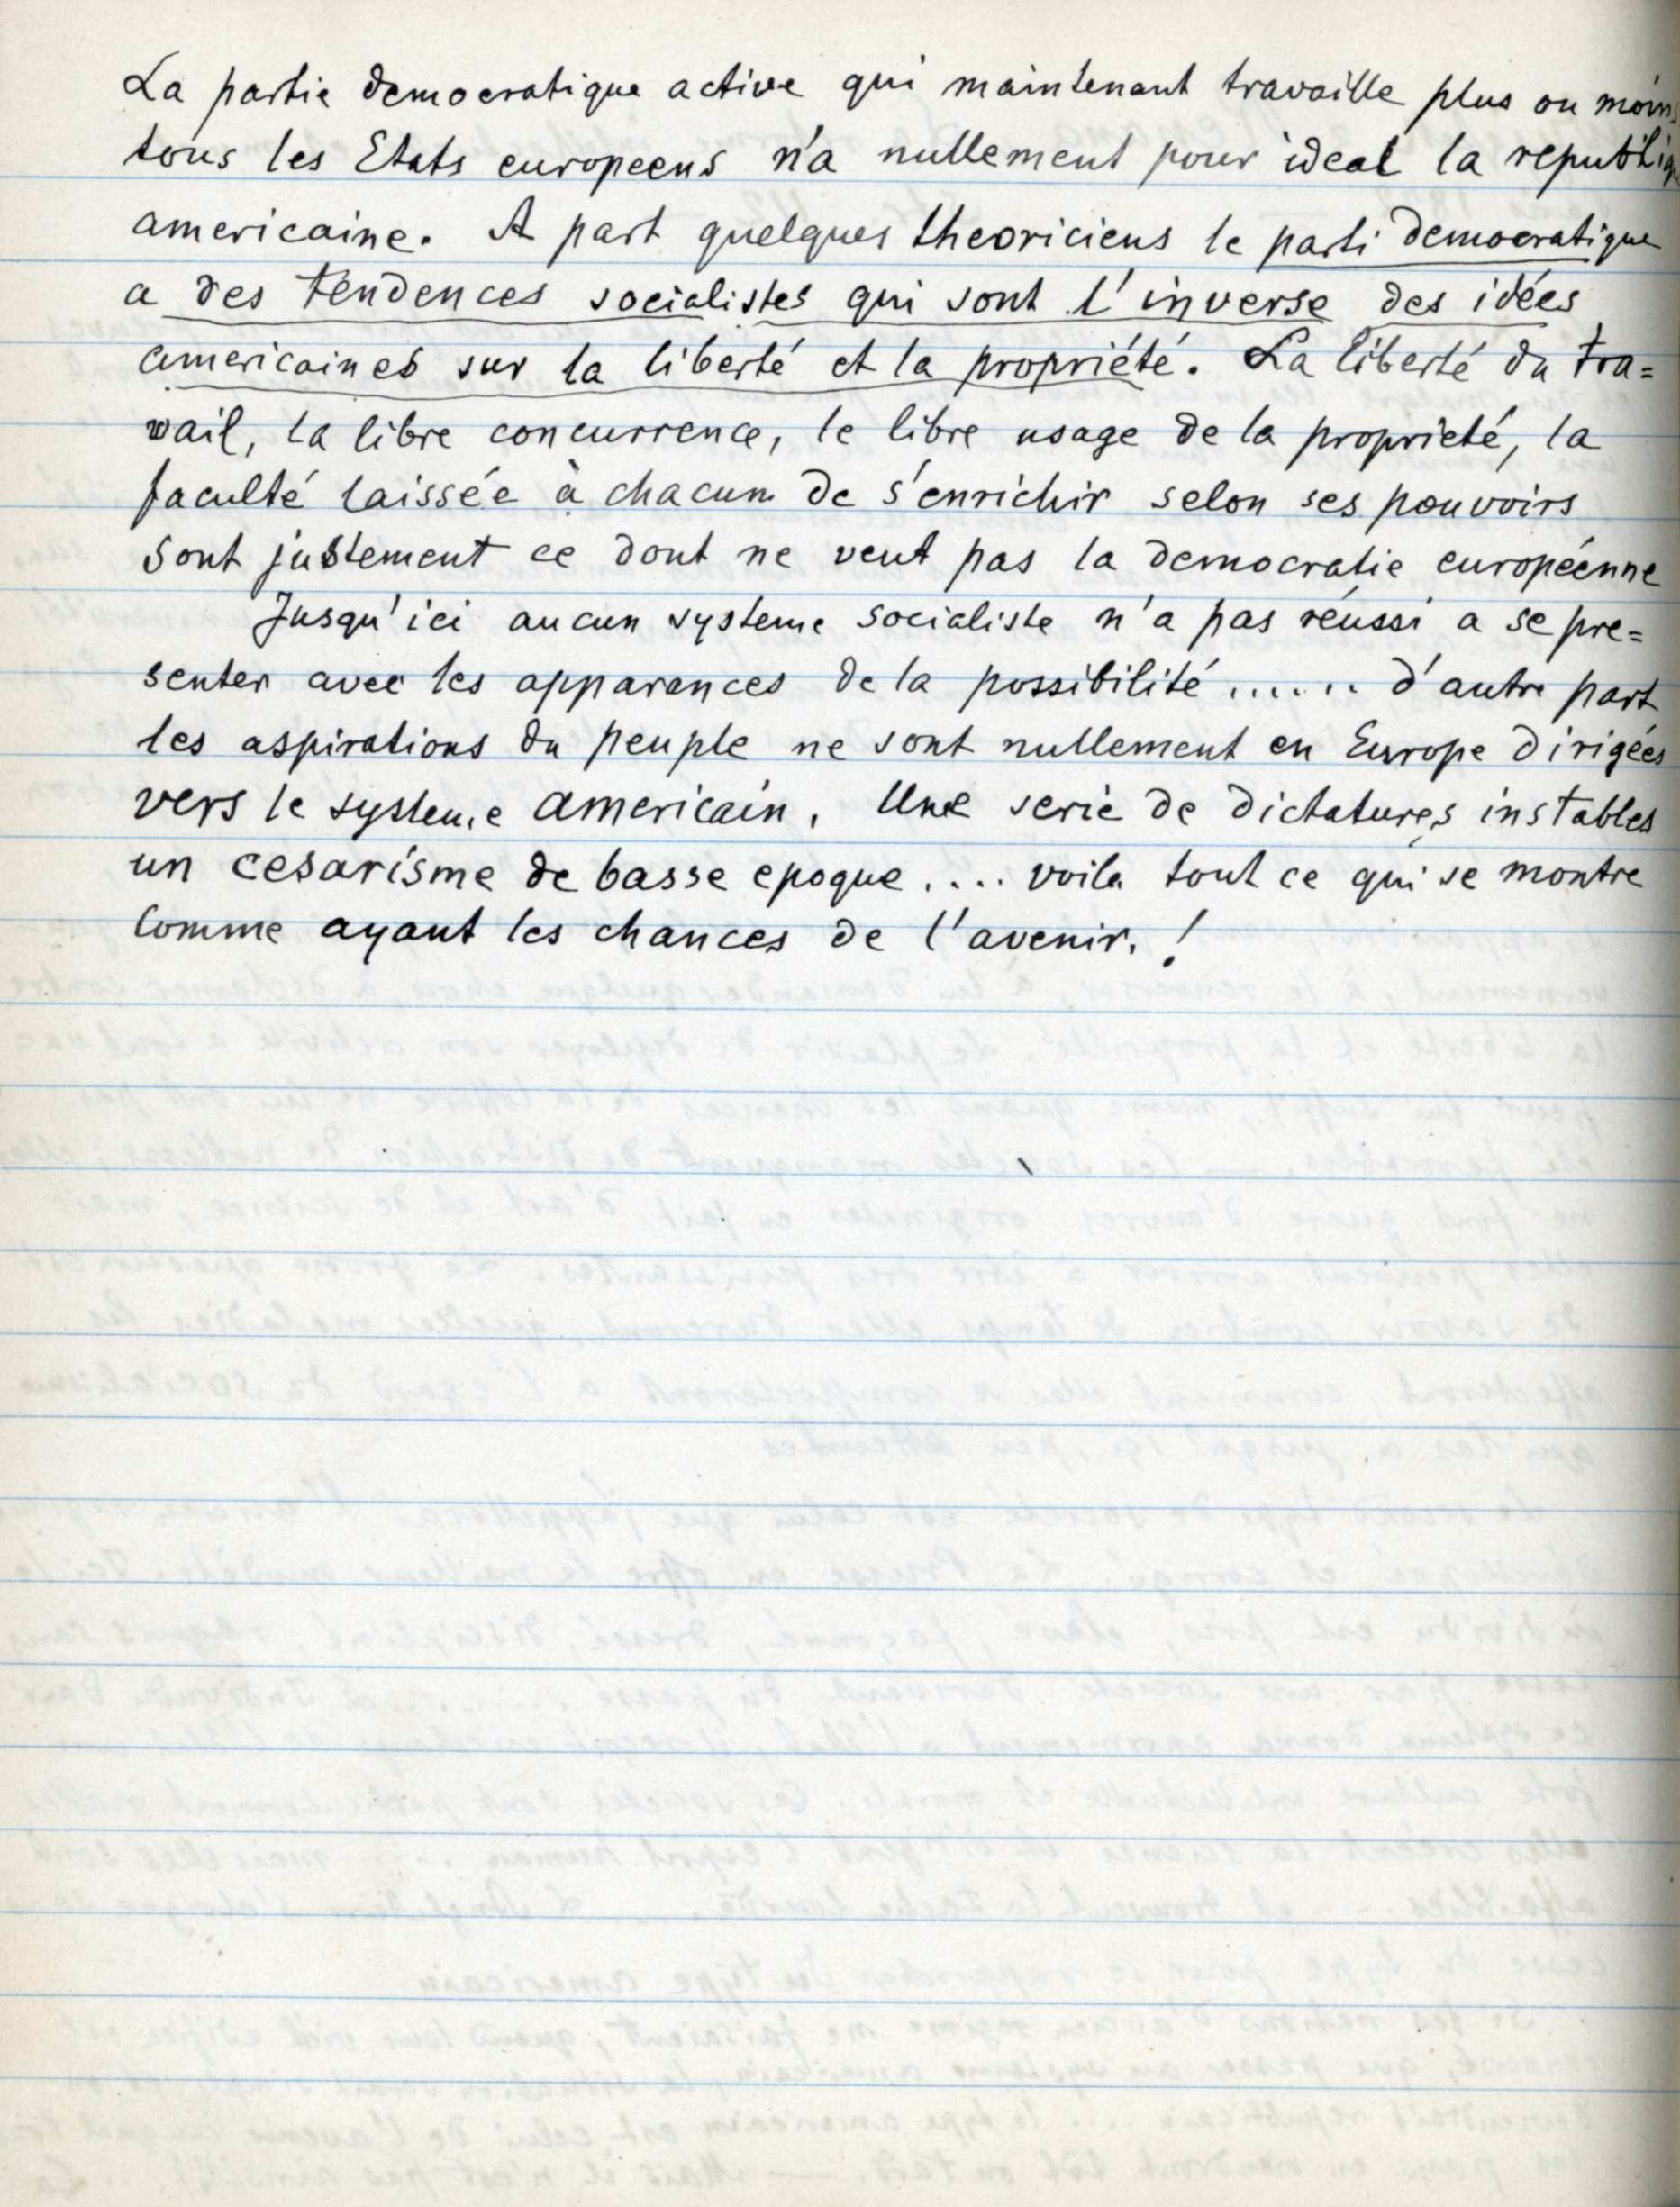 La partie democratique active qui maintenant travaille plus ou moins
tous les Etats europeens n'a nullement pour ideal la republique
americaine. A part quelques theoriciens le parti democratique
a des tendences socialistes qui sont l'inverse des idées
americaines sur la liberté et la propriété. La liberté du tra=
vail, la libre concurrence, le libre usage de la propriété, la
faculté laissée à chacun de s'enrichir selon ses pouvoirs
sont justement ce dont ne veut pas la democratie européenne
Jusqu'ici aucun systeme socialiste n'a pas réussi a se pre=
senter avec les apparances de la possibilité ...... d'autre part
les aspirations du peuple ne sont nullement en Europe dirigées
vers le systeme americain. Une serie de dictatures instables
un cesarisme de basse epoque .... voila tout ce qui se montre
comme ayant les chances de l'avenir. !